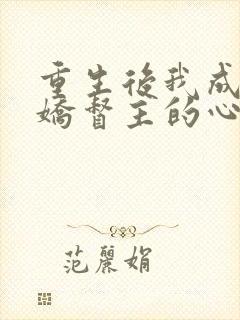 重生後我成
嬌督主的心
范麗娟